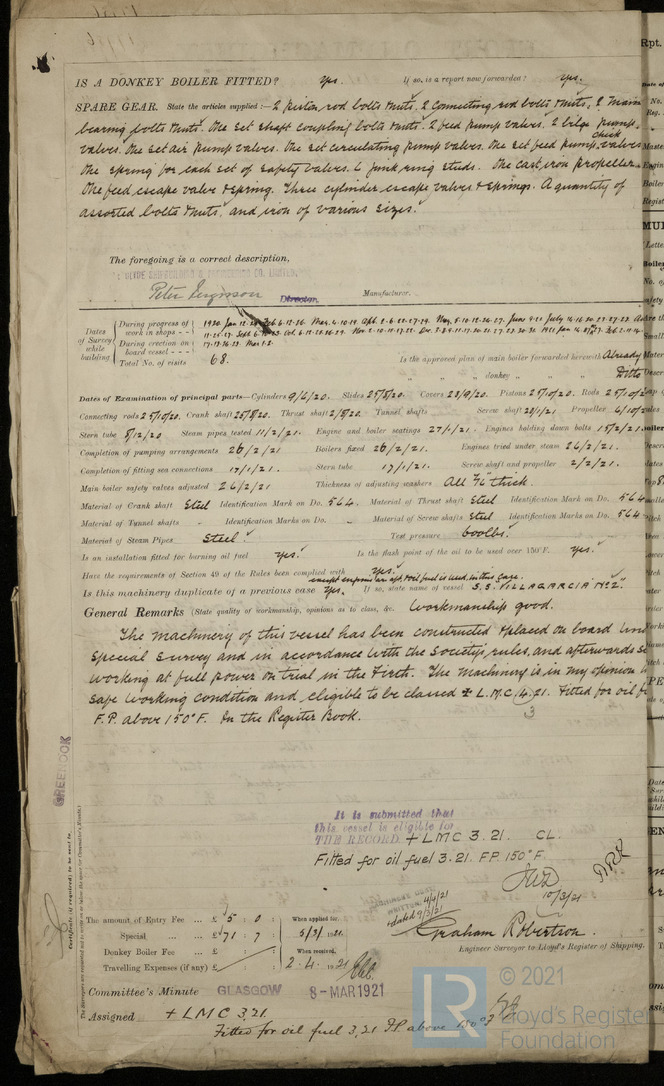 IS A DONKEY BOILER FITTED? Yes. If so, is a report now forwarded? Yes.
SPARE GEAR. State the articles supplied:— 2 piston rod bolts & nuts. 2 Connecting rod bolts & nuts, 2 Main
bearing bolts & nuts. One set shaft coupling bolts & nuts. 2 feed pump valves. 2 bilge pump
valves. One set air pump valves. One set circulating pump valves. One set feed pump check valves
One spring for each set of safety valves. 6 junk ring studs. One cast iron propeller
One feed escape valve & spring. Three cylinder escape valves & springs. A quantity of
assorted bolts & nuts, and iron of various sizes.
The foregoing is a correct description,
CLYDE SHIPBUILDING & ENGINEERING CO. LIMITED,
Peter Ferguson Director. Manufacturer.
Dates of Survey while building
During progress of work in shops - -
During erection on board vessel - - -
Total No. of visits 68.
Is the approved plan of main boiler forwarded herewith Already
" " " donkey " " " Ditto
Dates of Examination of principal parts—Cylinders 9/6/20. Slides 25/8/20. Covers 23/9/20. Pistons 27/10/20. Rods
Connecting rods 25/10/20. Crank shaft 25/8/20. Thrust shaft 2/8/20. Tunnel shafts Screw shaft 28/1/21. Propeller 4/10/
Stern tube 8/12/20 Steam pipes tested 11/2/21. Engine and boiler seatings 27/1/21. Engines holding down bolts 15/2/21.
Completion of pumping arrangements 26/2/21 Boilers fixed 26/2/21. Engines tried under steam 26/2/21.
Completion of fitting sea connections 17/1/21. Stern tube 17/1/21. Screw shaft and propeller 2/2/21.
Main boiler safety valves adjusted 26/2/21 Thickness of adjusting washers All 7/16" thick.
Material of Crank shaft Steel Identification Mark on Do. 564. Material of Thrust shaft Steel Identification Mark on Do. 564
Material of Tunnel shafts - Identification Marks on Do. - Material of Screw shafts Steel Identification Marks on Do. 564
Material of Steam Pipes Steel Test pressure 600lbs.
Is an installation fitted for burning oil fuel Yes. Is the flash point of the oil to be used over 150°F. Yes.
Have the requirements of Section 49 of the Rules been complied with Yes.
Is this machinery duplicate of a previous case Yes. If so, state name of vessel S.S. VILLAGARCIA No 2.
General Remarks (State quality of workmanship, opinions as to class, &c. Workmanship good.
The machinery of this vessel has been constructed & placed on board
Special Survey and in accordance with the Society's rules, and afterwards
working at full power on trial in the Firth. The machinery is in my opinion
safe working condition and eligible to be classed + L.M.C. 4.21. Fitted for oil
3
F.P. above 150°F. in the Register Book.
GREENOCK
It is submitted that
this vessel is eligible for
THE RECORD + LMC 3.21. CL.
Fitted for oil fuel 3.21. FP. 150°F.
10/3/21
Graham Robertson.
Engineer Surveyor to Lloyd's Register of Shipping.
The amount of Entry Fee ... £ 5 : 0 : When applied for,
Special ... £ 71 : 7 : 5/3/1921
Donkey Boiler Fee ... £ : : When received,
Travelling Expenses (if any) £ : : 2.4.1921
Committee's Minute GLASGOW 8-MAR 1921
Assigned + LMC 3.21.
Fitted for oil fuel 3.21 F.P. above 150°F
LR
© 2021
Lloyd's Register
Foundation